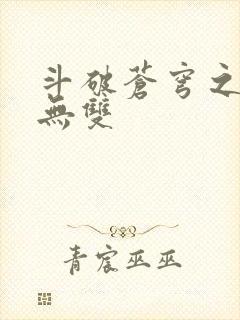 斗破蒼穹之
無雙
青宸巫巫